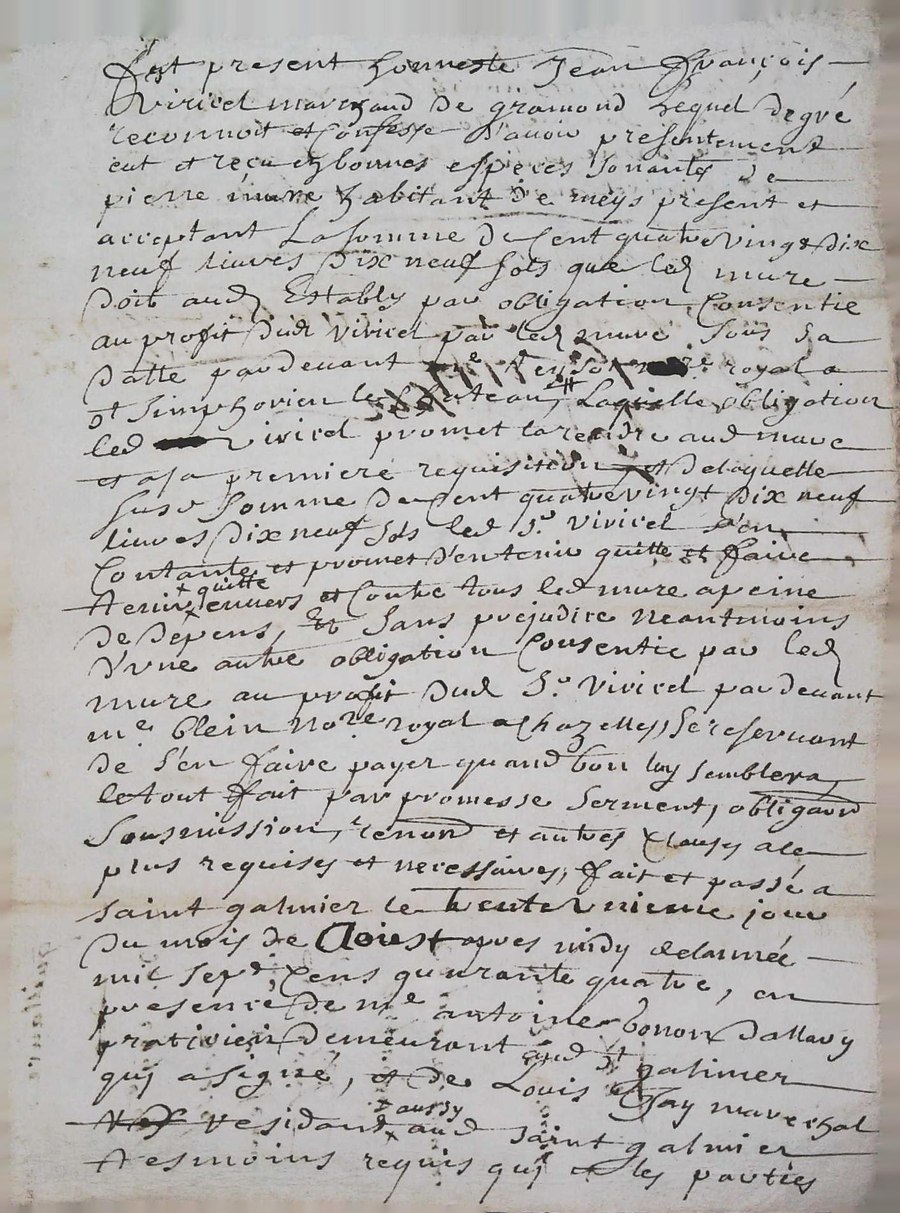 fut present honneste Jean françois
viricel marchand de gramond lequel de gré
reconnoit et confesse d'avoir presentement
eut et reçu en bonnes espèces sonantes de
pierre mure habitant de meys present et
acceptant La somme de Cent quatre vingt dix
neuf livres dix neuf sols que led mure
doit aud Estably par obligation Consentie
au profit dud viricel par led mure sous sa
datte pardevant royal a
st simphorien le chateau, Laquelle obligation
led viricel promet la rendre aud mure
et a sa premiere requisition, et de laquelle
susd somme de Cent quatre vingt dix neuf
livres dix neuf sols led Sr viricel s'en
Contante et promet d'en tenir quitte et faire
quitte
tenir envers et Contre tous led mure a peine
de depens, Et Sans prejudice neantmoins
d'une autre obligation Consentie par led
mure au profit dud Sr viricel pardevant
me blein nore royal a Chazelles, Se reservant
de s'en faire payer quand bon luy semblera,
le tout fait par promesse serment, obligaon
Sousmission, renond et autres Clauses a ce
plus requises et necessaires, fait et passé a
saint galmier le jour
du mois de Aoust apres midy de l'année
mil sept Cens quarante quatre, en
presence de me antoine bonon dallary
praticien demeurant aud st galmier
qui a signé, et de Louis Jay mareschal
aussy
residant aud saint galmier
tesmoins requis qui et les parties